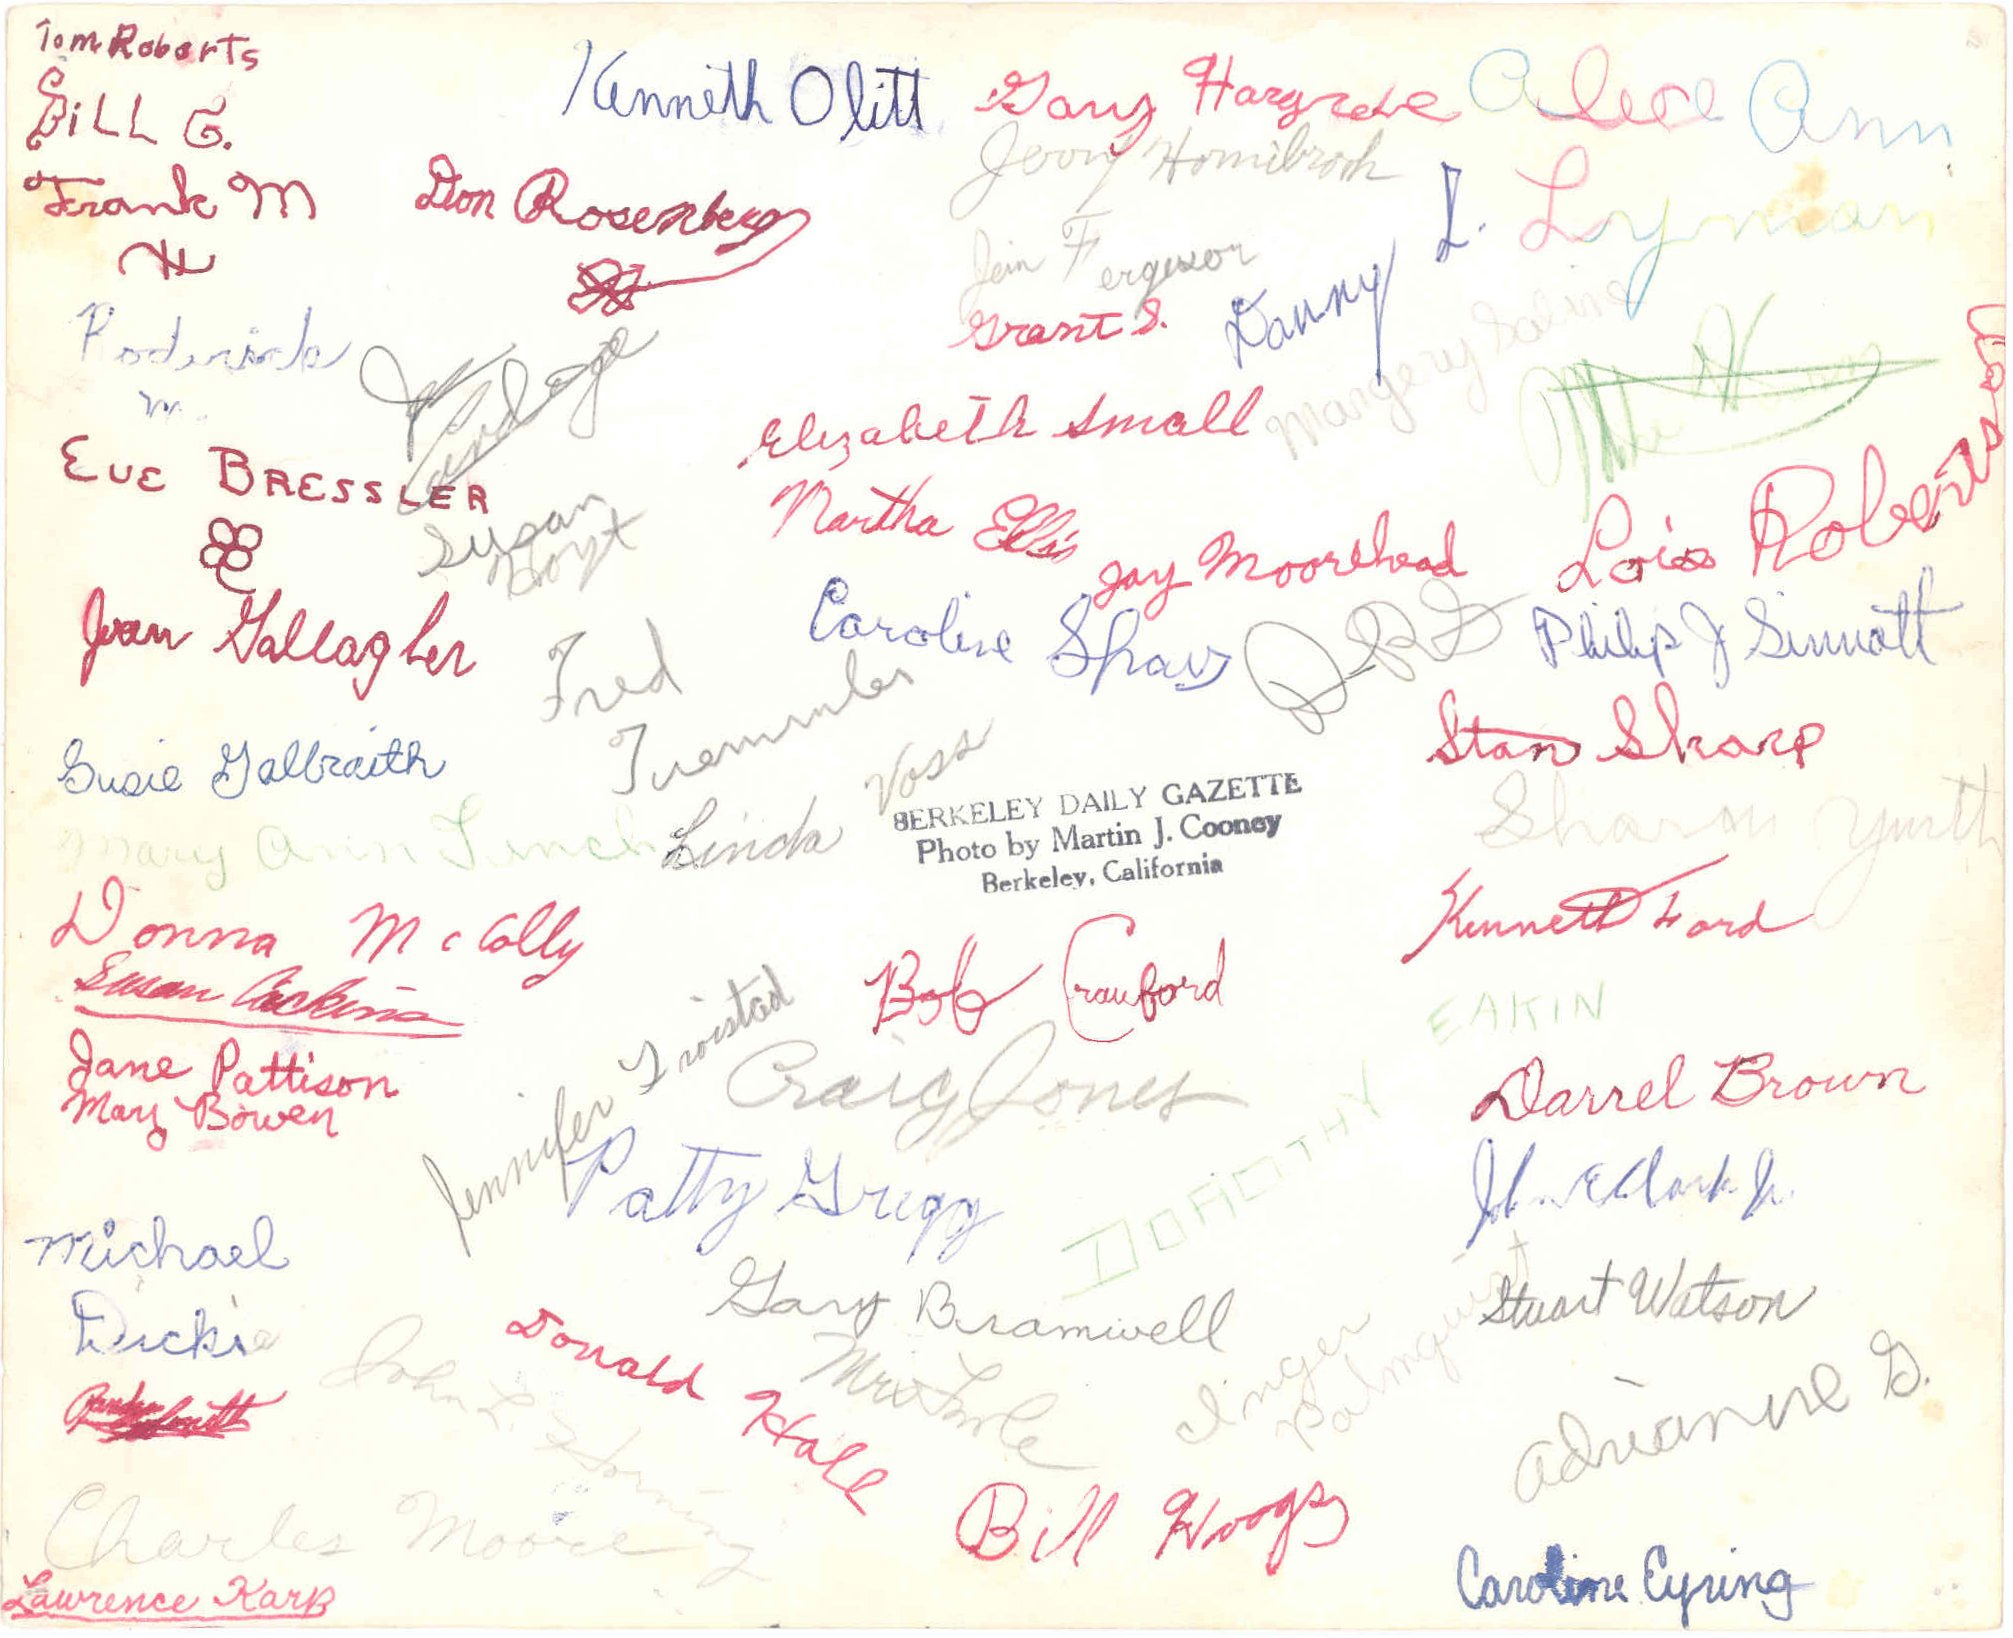 Tom Roberts
BiLL G.
Frank M
Kenneth Olitt
Gary Hargrove
Alice Ann
Lyman
Jerry Hornibrook
Don Rosenberg
Jim Ferguson
Grant S.
Danny L.
Margery Saline
Roderick
M.
Elizabeth Small
EVE BRESSLER
Susan
Hoyt
Martha Ellis
Jay Moorehead
Lois Robertson
Jean Gallagher
Caroline Shaw
Philip J Sinnott
Fred
Tremmler
Stan Sharp
Susie Galbraith
Linda Voss
BERKELEY DAILY GAZETTE
Photo by Martin J. Cooney
Berkeley, California
Mary Ann Finch
Sharon
Donna McColly
Susan
Kenneth Ford
Bob Crawford
Jane Pattison
Mary Bowen
Jennifer Troistad
Craig Jones
DOROTHY EAKIN
Darrel Brown
Patty Gregg
John E Clark Jr.
Michael
Dickie
Gary Bramwell
Stuart Watson
Donald Hall
Mrs
Inger
Palmquist
Adrianne G.
John L Horning
Charles Moore
Bill Hoogs
Lawrence Karp
Caroline Eyring